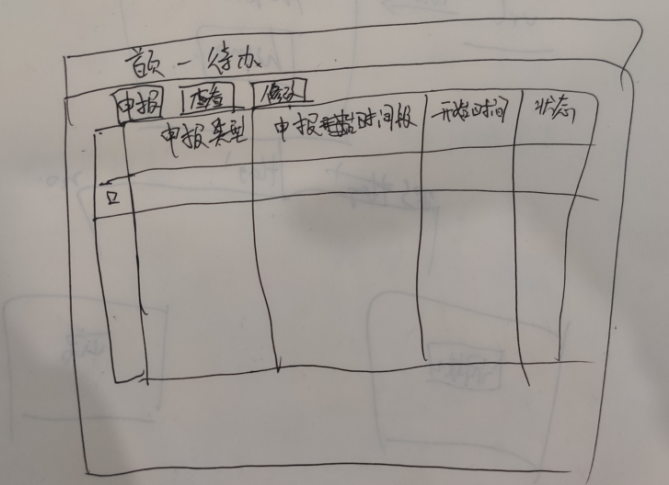 首页 - 待办
申报 查看 修改
申报类型 申报时间段 开始时间 状态